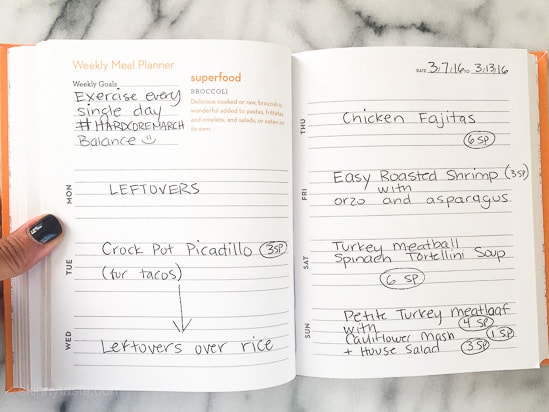 Weekly Meal Planner
Weekly Goals
Exercise every
single day
#HARDCOREMARCH
Balance
superfood
BROCCOLI
Delicious cooked or raw, broccoli is
wonderful added to pastas, frittatas
and omelets, and salads, or eaten on
its own.
MON
LEFTOVERS
TUE
Crock Pot Picadillo 3SP
(for tacos)
WED
Leftovers over rice
DATE 3/7/16 TO 3/13/16
THU
Chicken Fajitas
6 SP
FRI
Easy Roasted Shrimp (3SP)
with
orzo and asparagus
SAT
Turkey meatball
Spinach Tortellini Soup
6 SP
SUN
Petite Turkey meatloaf
with 4 SP
Cauliflower Mash 1 SP
+ House Salad 3SP
skinnytaste.com